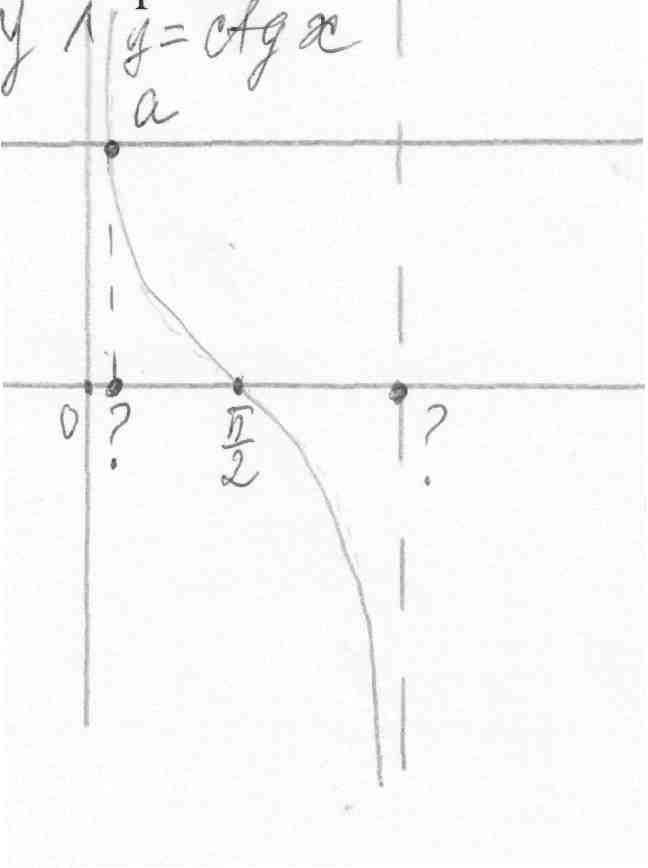 y y = ctg x
a
0 ? π/2 ?